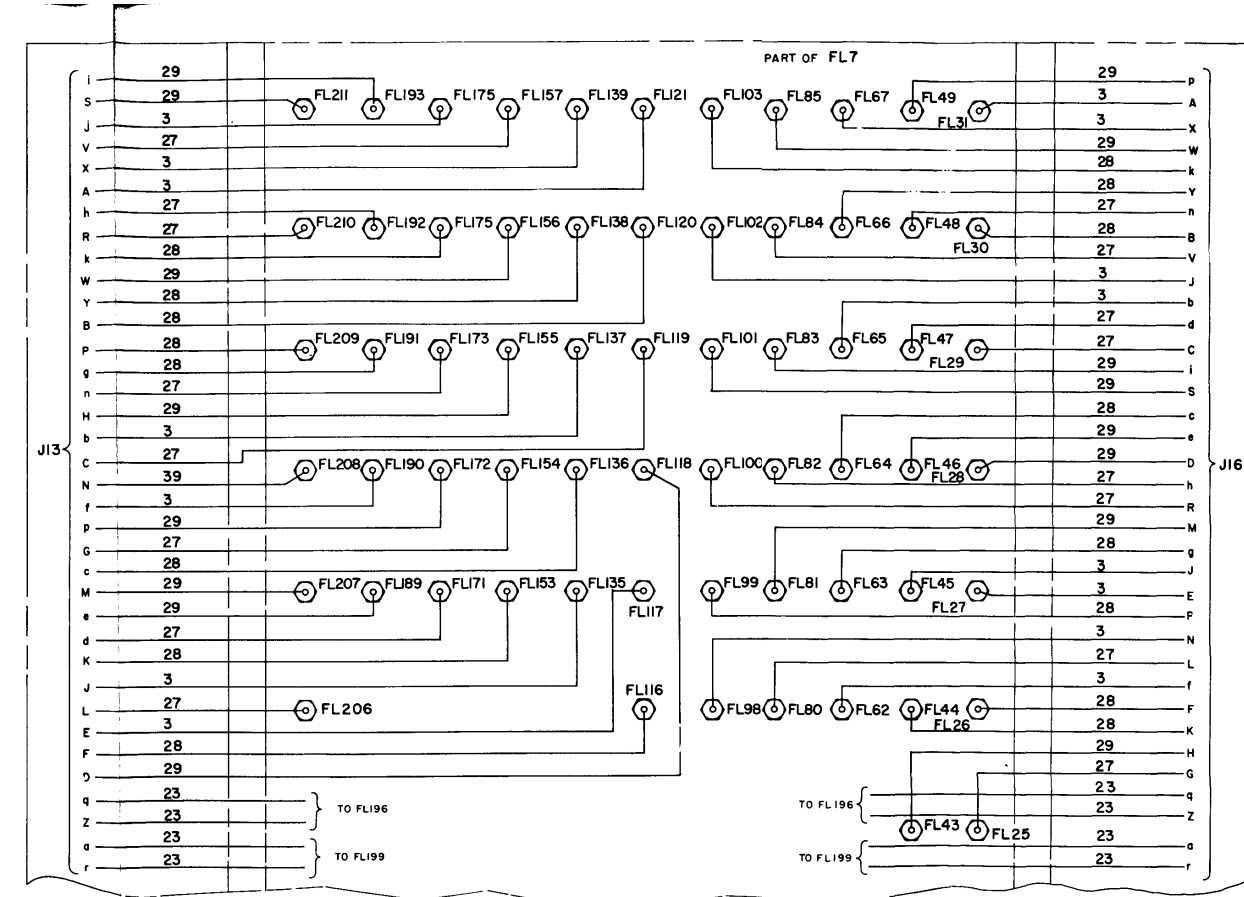 PART OF FL7
i 29
S 29
j 3
V 27
X 3
A 3
h 27
R 27
k 28
W 29
Y 28
B 28
P 28
g 28
n 27
H 29
b 3
C 27
N 39
f 3
p 29
G 27
c 28
M 29
e 29
d 27
K 28
J 3
L 27
E 3
F 28
D 29
q 23
Z 23
a 23
r 23
J13
FL211 FL193 FL175 FL157 FL139 FL121 FL103 FL85 FL67 FL49
FL31
FL210 FL192 FL175 FL156 FL138 FL120 FL102 FL84 FL66 FL48
FL30
FL209 FL191 FL173 FL155 FL137 FL119 FL101 FL83 FL65 FL47
FL29
FL208 FL190 FL172 FL154 FL136 FL118 FL100 FL82 FL64 FL46
FL28
FL207 FL189 FL171 FL153 FL135 FL99 FL81 FL63 FL45
FL117 FL27
FL116
FL206 FL98 FL80 FL62 FL44
FL26
FL43 FL25
TO FL196
TO FL199
TO FL196
TO FL199
29 p
3 A
3 X
29 W
28 k
28 Y
27 n
28 B
27 V
3 J
3 b
27 d
27 C
29 i
29 S
28 c
29 e
29 D
27 h
27 R
29 M
28 g
3 J
3 E
28 P
3 N
27 L
3 f
28 F
28 K
29 H
27 G
23 q
23 Z
23 a
23 r
J16